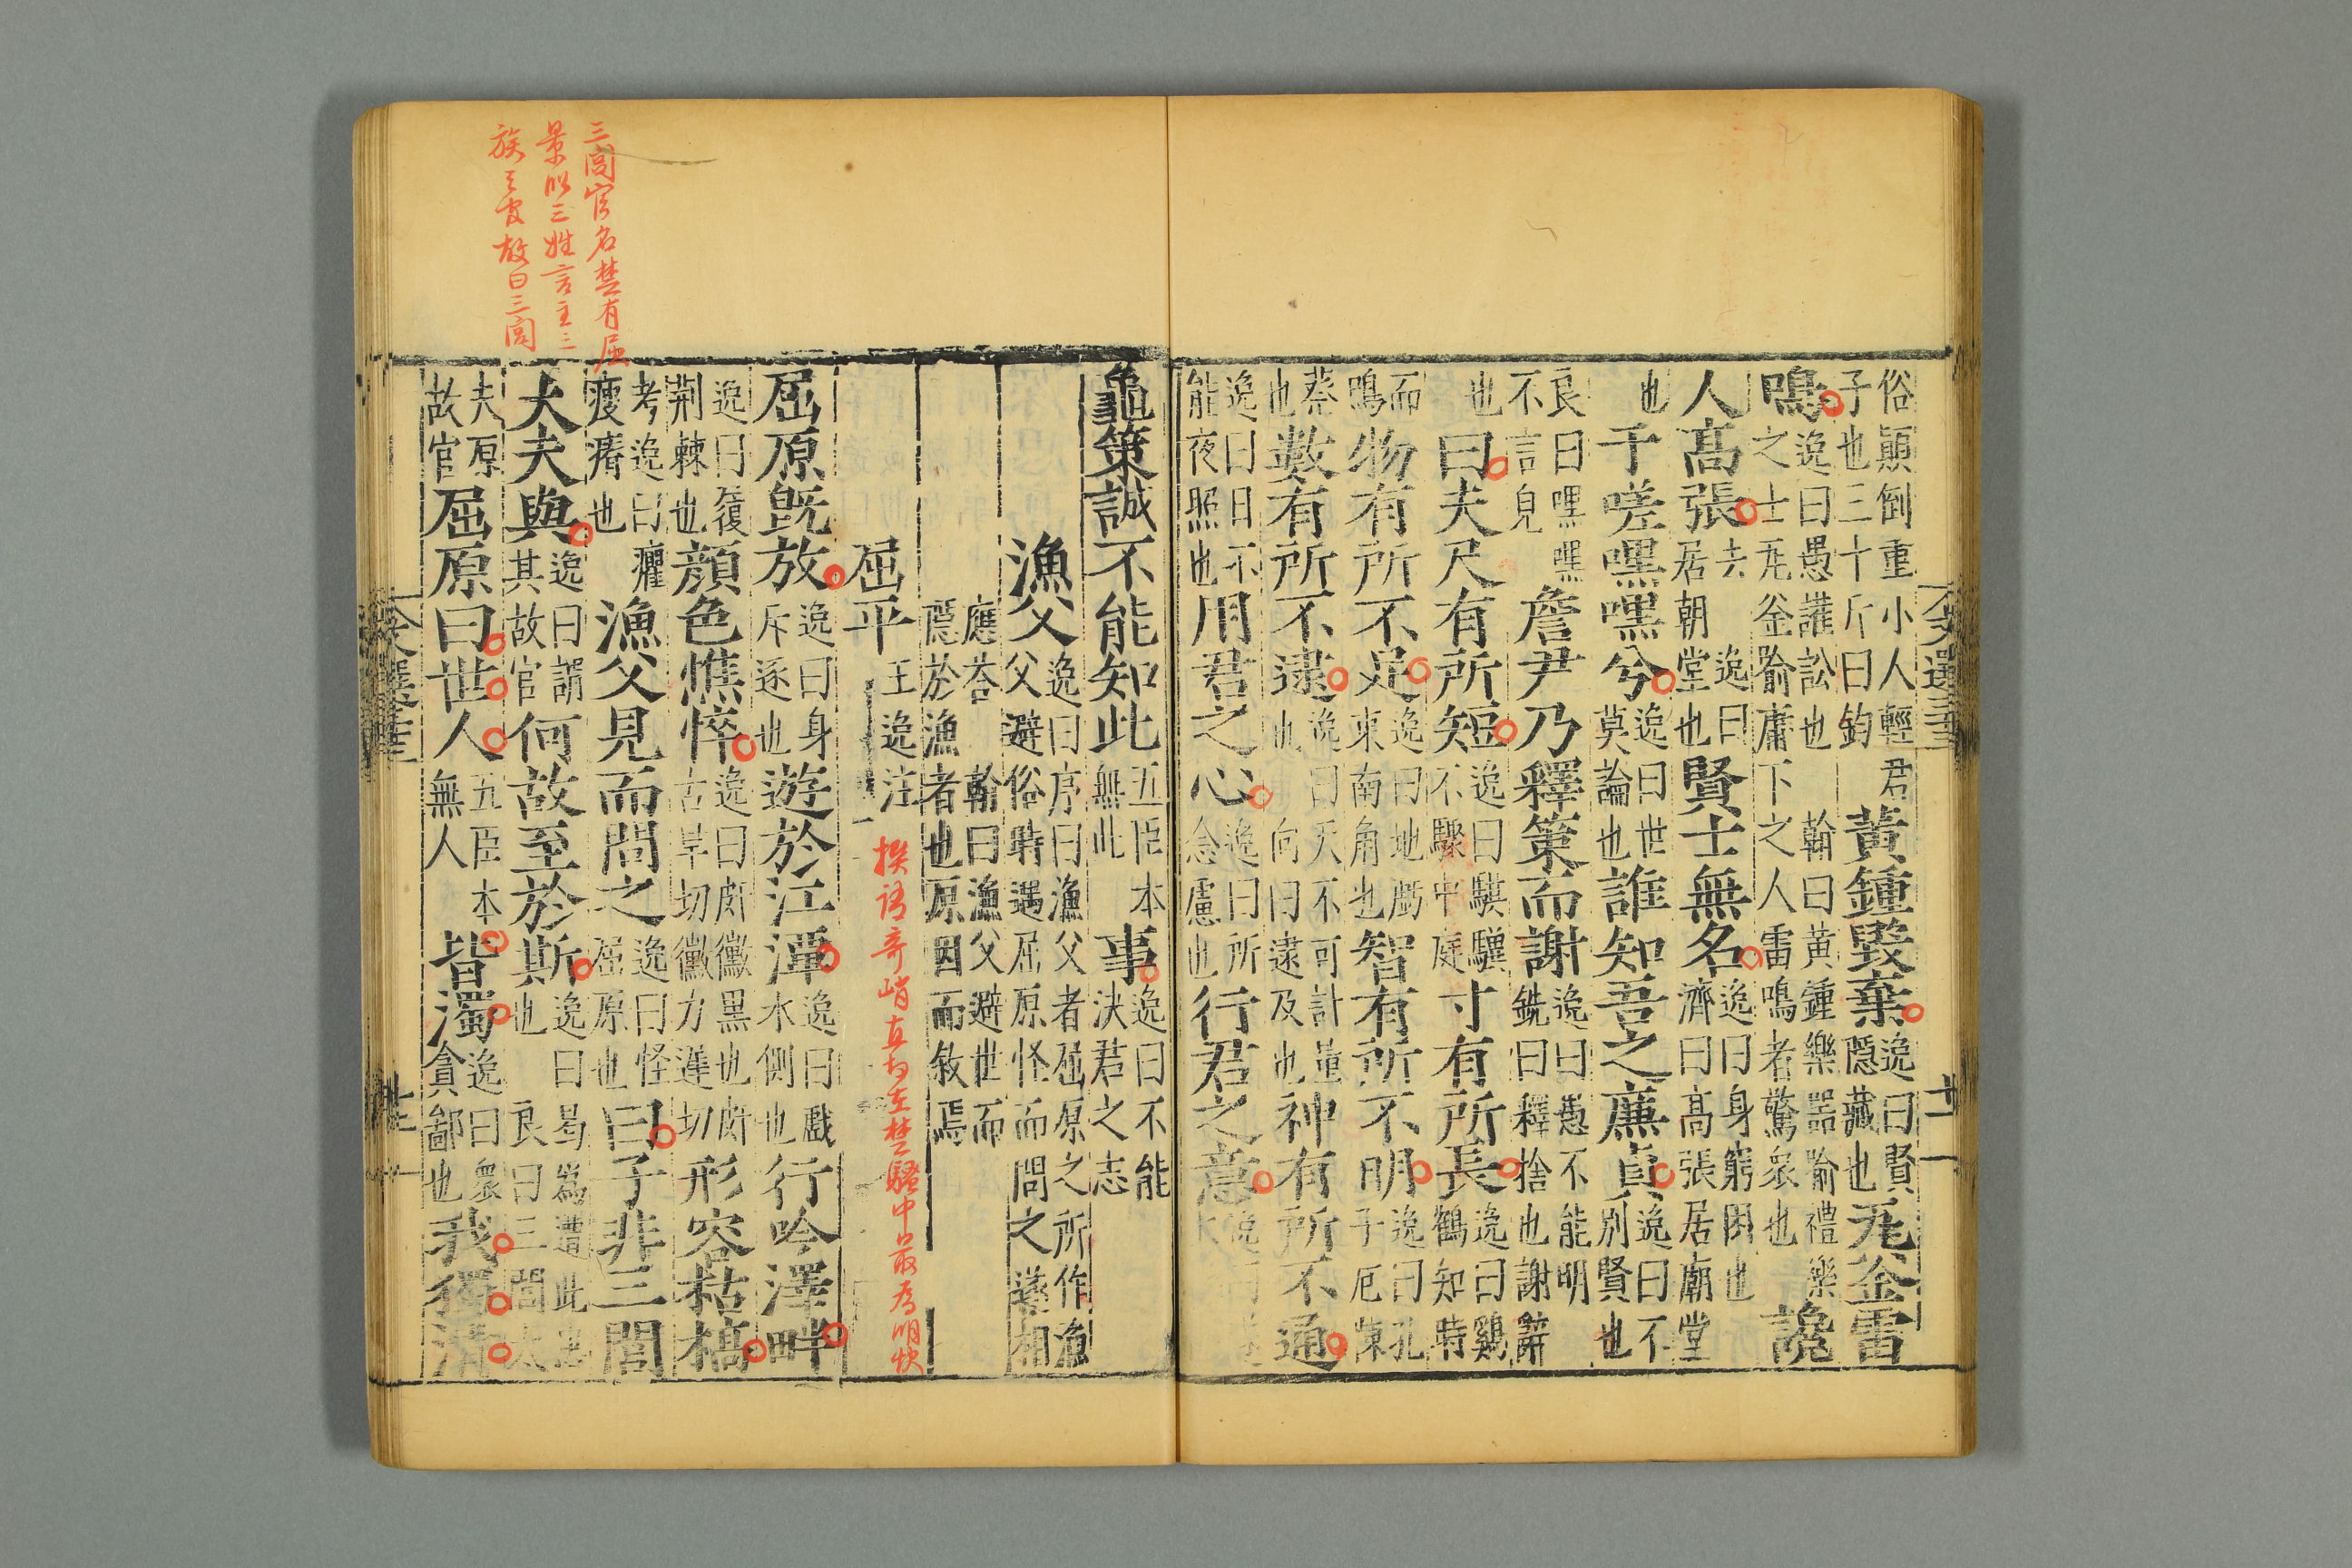 文選三十三
廿一
俗顛倒重小人輕君子也三十斤曰鈞黃鍾毀棄逸曰賢隱藏也瓦釜雷
鳴逸曰愚讙訟也翰曰黃鍾樂器喻禮樂之士瓦釜喻庸下之人雷鳴者驚衆也讒
人高張去逸曰居朝堂也賢士無名逸曰身窮困也濟曰高張居廟堂
也于嗟嘿嘿兮逸曰世莫論也誰知吾之廉貞逸曰不別賢也
良曰嘿嘿不言皃詹尹乃釋策而謝逸曰愚不能明銑曰釋捨也謝辭
也曰夫尺有所短逸曰騏驥不驟中庭寸有所長逸曰鷄鶴知時
而鳴物有所不足逸曰地虧東南角也智有所不明逸曰孔子厄陳
蔡也數有所不逮逸曰天不可計量也向曰逮及也神有所不通
逸曰日不能夜照也用君之心逸曰所念慮也行君之意逸
龜策誠不能知此五臣本無此事逸曰不能決君之志
漁父逸曰序曰漁父者屈原之所作漁父避俗時遇屈原怪而問之遂相
應荅翰曰漁父避世而隱於漁者也原因而敘焉
屈平王逸注
撰語奇峭直切在楚騷中最為明快
屈原旣放逸曰身斥逐也遊於江潭逸曰戲水側也行吟澤畔
逸曰履荆棘也顔色憔悴逸曰皯黴黑也皯古旱切黴力遲切形容枯槁
考逸曰癯瘦瘠也漁父見而問之逸曰怪屈原也曰子非三閭
大夫與逸曰謂其故官何故至於斯逸曰曷為遭此患也良曰三閭大
夫原故官屈原曰世人五臣本無人皆濁逸曰衆貪鄙也我獨清
三閭官名楚有屈
景昭三姓言主三
族之官故曰三閭